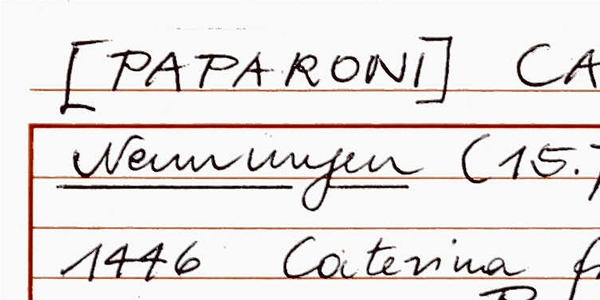 [PAPARONI] CA
Nennungen (15.
1446 Caterina